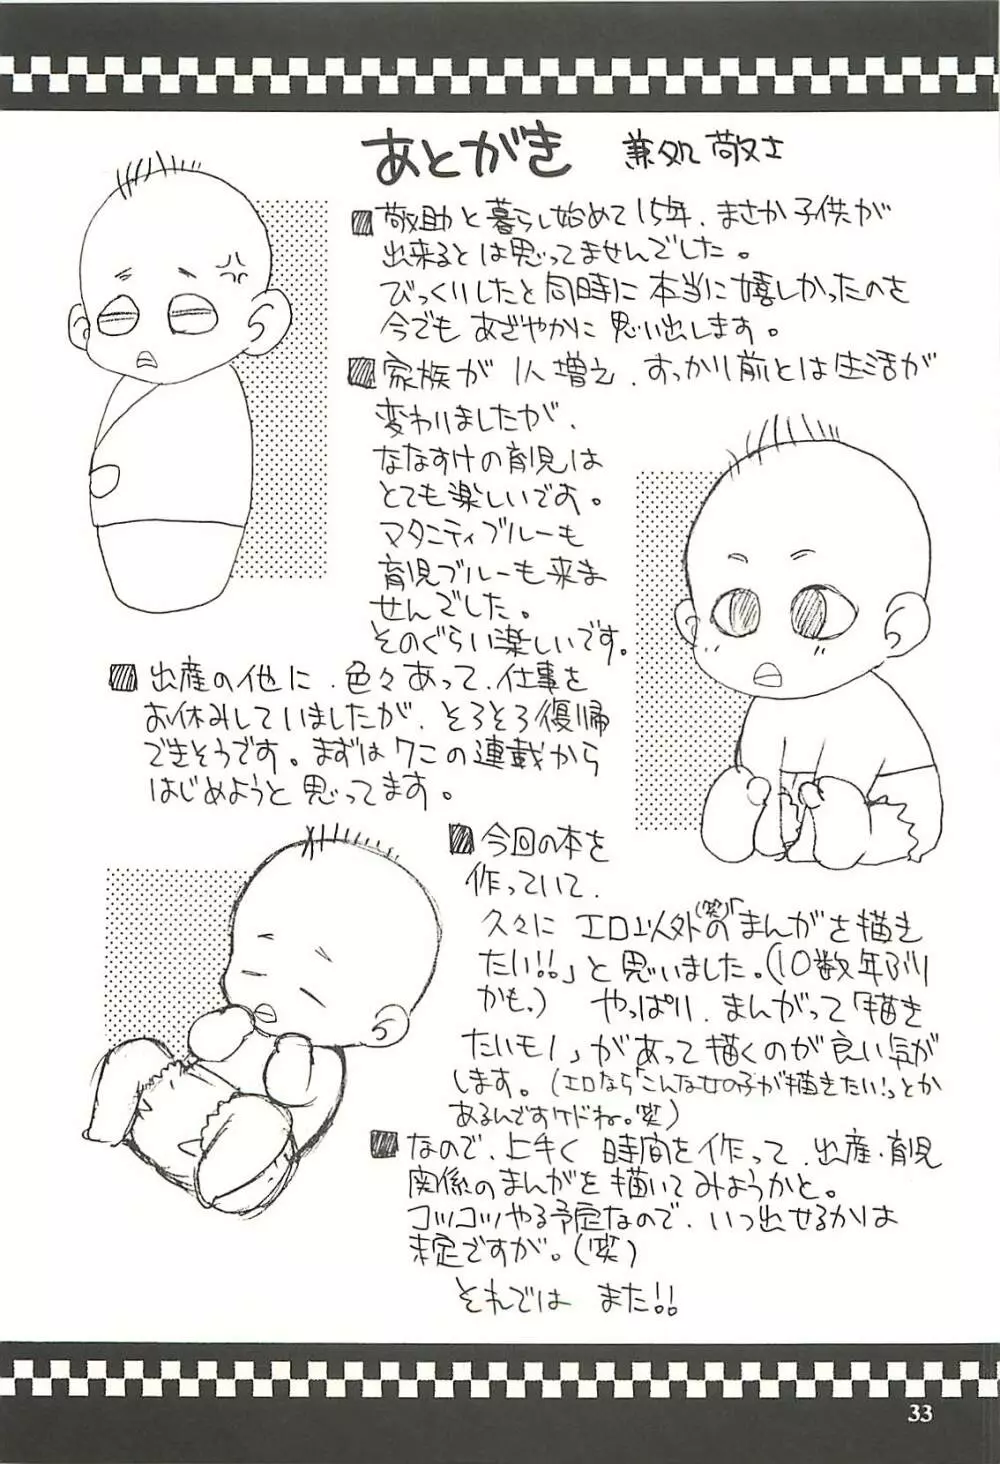 あとがき 兼処 敬士
敬助と暮らし始めて15年、まさか子供が
出来るとは思ってませんでした。
びっくりしたと同時に本当に嬉しかったのを
今でもあざやかに思い出します。
家族が1人増え、すっかり前とは生活が
変わりましたが、
ななすけの育児は
とても楽しいです。
マタニティブルーも
育児ブルーも来ま
せんでした。
そのぐらい楽しいです。
出産の他に、色々あって、仕事を
お休みしていましたが、そろそろ復帰
できそうです。まずはクニの連載から
はじめようと思ってます。
今回の本を
作っていて、
久々に エロ以外の(笑)「まんがを描き
たい!!」と思いました。(10数年ぶり
かも。) やっぱり、まんがって「描き
たいモノ」があって描くのが良い気が
します。(エロなら「こんな女の子が描きたい!」とか
あるんですけドね。笑)
なので、上手く時間を作って、出産・育児
関係のまんがを描いてみようかと。
コツコツやる予定なので、いつ出せるかは
未定ですが。(笑)
それでは また!!
33